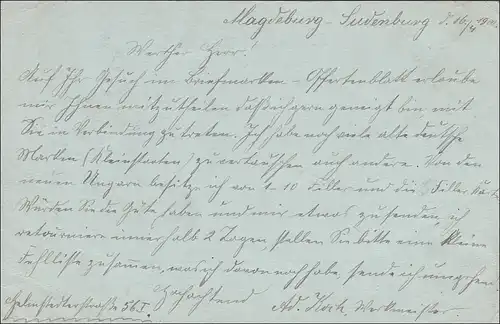 Magdeburg-Sudenburg d. 16/4 1900.
Werther Herr!
Auf Ihr Gesuch im Briefmarken-Offertenblatt erlaube
mir Ihnen mitzutheilen daß ich gern geneigt bin mit
Sie in Verbindung zu treten. Ich habe noch viele alte deutsche
Marken (Kleinstaaten) zu vertauschen auch andere. Von den
neuen Ungarn besitze ich von 1-10 Filler und die Filler Karte
Würden Sie die Güte haben und mir etwas zusenden, ich
retourniere innerhalb 2 Tagen stellen Sie bitte eine kleine
Fehlliste zusammen, was ich davon noch habe, sende ich umgehen.
Hochachtend
Helmstedterstraße 56 I. Ad. Werkmeister.